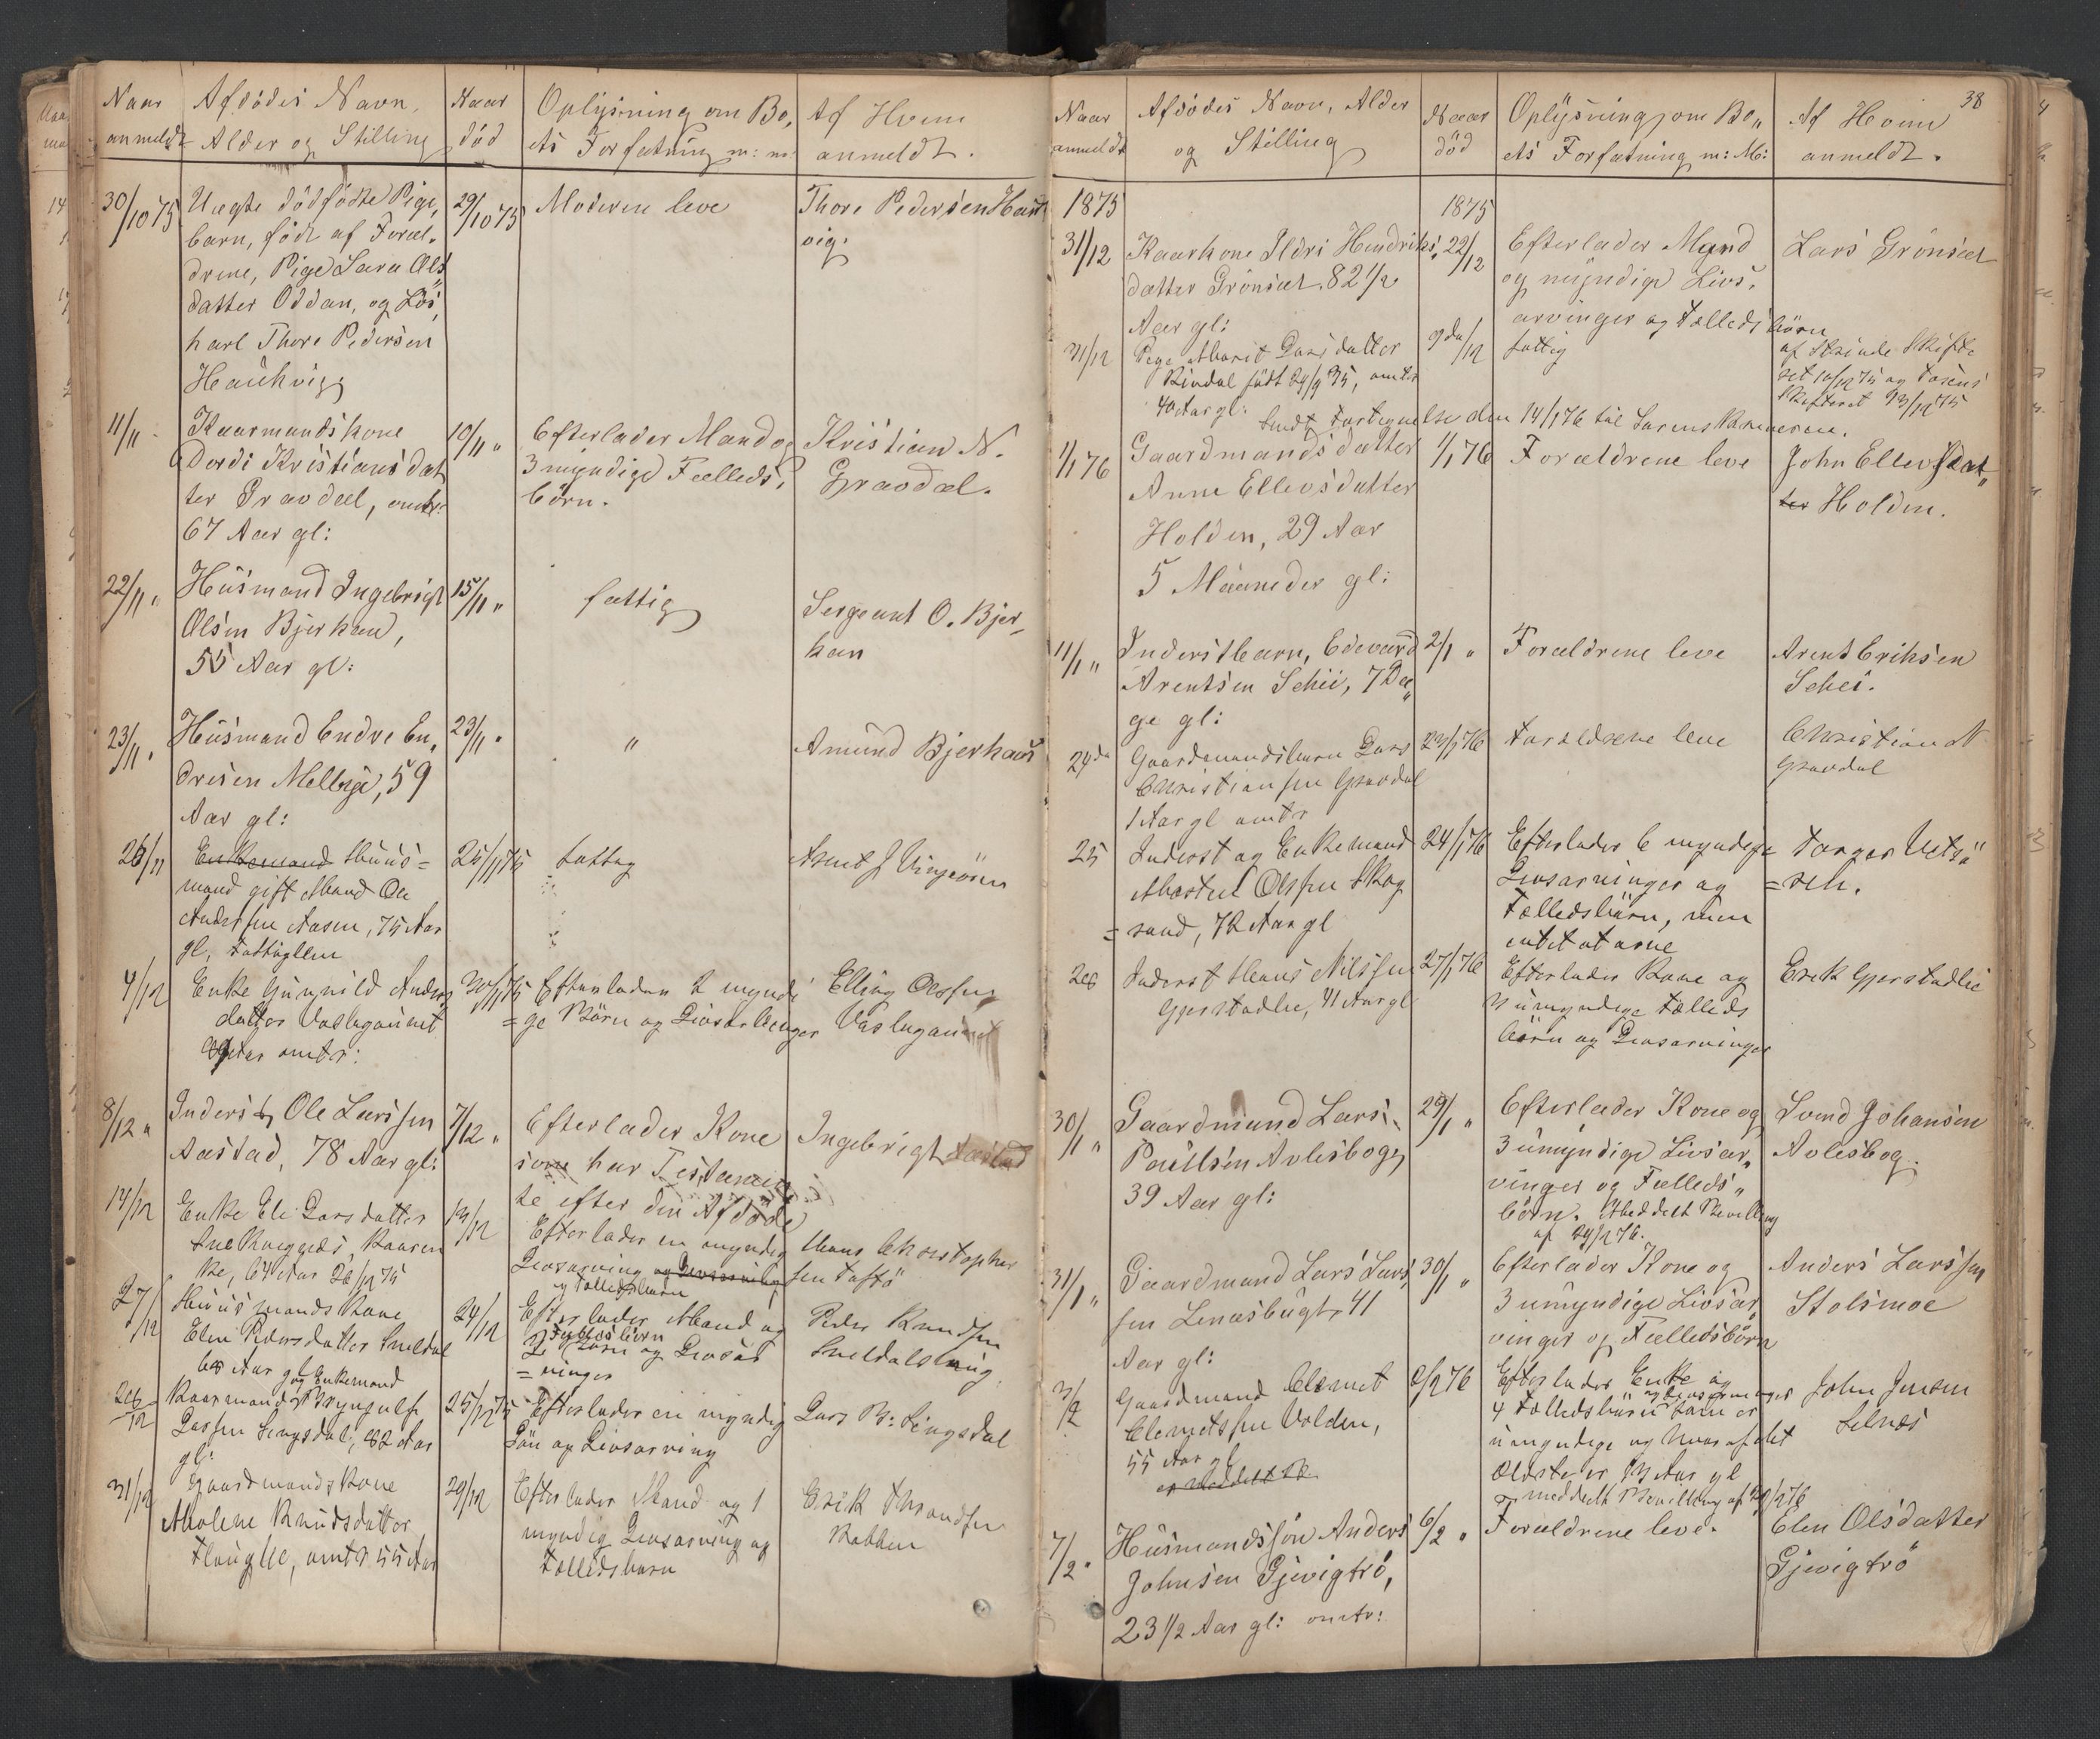 Naar
anmeldt
Afdödes Navn,
Alder og Stilling
Naar
död
Oplysning om Bo,
ets Forfatning m: m:
Af Hvem
anmeldt.
30/10 75
Uægte dödfödte Pige,
barn, födt af Foræl,
drene, Pige Sara Ols
datter Oddan, og Lös,
karl Thore Pedersen
Haukvig
29/10 75
Moderen leve
Thore Pedersen Hauk
vig.
11/11
Kaarmandskone
Dordi Kristiansdat
ter Gravdal, omtr:
67 Aar gl:
10/11 "
Efterlader Mand og
3 myndige Fælleds,
börn.
Kristian N.
Gravdal.
22/11 "
Husmand Ingebrigt
Olsen Bjerkan,
55 Aar gl:
15/11 "
fattig
Sergeant O. Bjer,
kan
23/11 "
Husmand Endre En,
dresen Mellesje, 59
Aar gl:
23/11 "
"
Amund Bjerkaas
26/11
Enkemand Huus=
mand gift Mand Ole
Anderssen Aasen, 75 Aar
gl, Fattiglem
25/11 75
fattig
Arnt J Vingvören
4/12
Enke Gunnild Anders
datter Vaslugauret
Aar omtr:
30/11 75
Efterlader 2 myndi
=ge Börn og Livsarvinger
Elling Olssen
Vaslugauret
8/12 "
Inderst Ole Larssen
Aastad, 78 Aar gl:
7/12 "
Efterlader Kone
som har Testamen
te efter den Afdöde
Ingebrigt Aastad
14/12
Enke Eli Larsdatter
Kaaren
ke, 67 Aar 26/12 75
13/12
Efterlader en myndig
Livsarving og Livsarving
og Fælledsbarn
Hans Christopher
sen Taftö
27/12
Huusmands Kone
Elen Pedersdatter Sneldal
68 Aar gl
24/12
Efterlader Mand og
Fælledsbörn
2 Börn og Livsar
=vinger
Peder Knudsen
Sneldalseng
26/12
og Enkemand
Kaarmand Brynjulf
Larssen Lingsdal, 82 Aar
gl:
25/12 75
Efterlader en myndig
Sön og Livsarving
Lars B: Lingsdal
31/12
Gaardmands Kone
Malene Knudsdatter
Flouglie, omtr 55 Aar
29/12
Efterlader Mand og 1
myndig Livsarving og
Fælledsbarn
Erik Throndsen
Rabben
38
Naar
anmeldt
Afdödes Navn, Alder
og Stilling
Naar
död
Oplysning om Bo,,
ets Forfatning m: M:
Af Hvem
anmeldt.
1875
1875
31/12
Kaarkone Ildri Hendriks,
datter Grönset 82 1/2
Aar gl:
22/12
Efterlader Mand
og myndige Livs,
arvinger og Fælledsbörn
Lars Grönset
31/12
Pige Marit Larsdatter
Rindal födt 29/9 35, omtr
40 Aar gl:
9de/12
fattig
af Strinde Skifte
ret 10/12 75 og Fosens
Skifteret 23/12 75
Sendt Fortegnelse den 14/1 76 til Sorenskriveren.
1/1 76
Gaardmandsdatter
Anne Ellevsdatter
Holden, 29 Aar
5 Maaneder gl:
1/1 76
Forældrene leve
John Ellevsdat,,
ter Holden.
11/1 "
Inderstbarn, Edevard
Arentsen Schei, 7 Da,,
ge gl:
2/1 "
Forældrene leve
Arent Eriksen
Schei.
24de
Gaardmandsbarn Lars
Christianssen Gravdal
1 Aar gl omtr
23/1 76
Forældrene leve
Christian N
Gravdal
25
Inderst og Enkemand
Olssen Skog
=rand, 72 Aar gl
24/1 76
Efterlader 6 myndige
Livsarvinger og
Fælledsbörn, men
intet at arve
Torger Vets
=seh.
28
Inderst Hans Nilssen
Gjerstadlie, 41 Aar gl
27/1 76
Efterlader Kone og
3 umyndige Fælleds
börn og Livsarvinger
Erik Gjerstadlie
30/1 "
Gaardmand Lars
Paulsen Avlesbog
39 Aar gl:
29/1 "
Efterlader Kone og
3 umyndige Livsar,,
vinger og Fælleds,,
börn. Meddelt Bevilling
af 29/2 76.
Svend Johansen
Avlesbog.
31/1 "
Gaardmand Lars Lars,
sen Lenæsbugt, 41
Aar gl:
30/1 "
Efterlader Kone og
3 umyndige Livsar,
vinger og Fælledsbörn
Anders Larssen
Stolsmoe
3/2
Gaardmand Clemet
Clemetssen Volden,
55 Aar gl
er meddelt B
2/2 76
Efterlader Enke og
og Livsarvinger
4 Fælledsbörn som er
umyndige og hvoraf det
Ældste er 13 Aar gl
meddelt Bevilling af 29/2 76
John Jensen
Selnæs
7/2 "
Husmandssön Anders
Johnsen Gjevigtrö,
23 1/2 Aar gl: omtr:
6/2 "
Forældrene leve.
Elen Olsdatter
Gjevigtrö